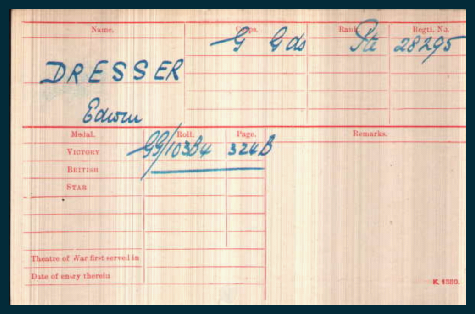 Name. Corps. Rank. Regtl. No.
G Gds Pte 28295
DRESSER
Edwin
Medal. Roll. Page. Remarks.
VICTORY GG/103B4 324B
BRITISH
STAR
Theatre of War first served in
Date of entry therein
K. 1380.